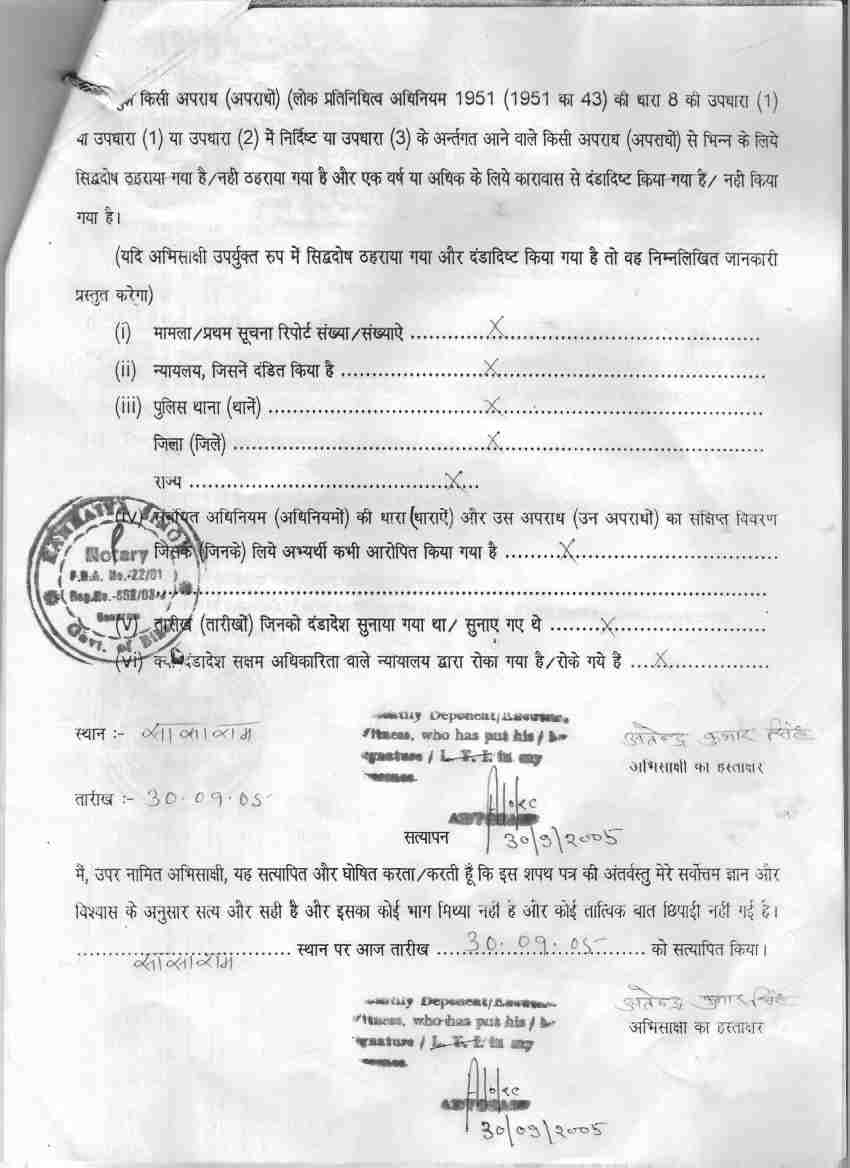 किसी अपराध (अपराधों) (लोक प्रतिनिधित्व अधिनियम 1951 (1951 का 43) की धारा 8 की उपधारा (1)
या उपधारा (1) या उपधारा (2) में निर्दिष्ट या उपधारा (3) के अर्न्तगत आने वाले किसी अपराध (अपराधों) से भिन्न के लिये
सिद्वदोष ठहराया गया है/नही ठहराया गया है और एक वर्ष या अधिक के लिये कारावास से दंडादिष्ट किया गया है/ नही किया
गया है।
(यदि अभिसाक्षी उपर्युक्त रुप में सिद्वदोष ठहराया गया और दंडादिष्ट किया गया है तो वह निम्नलिखित जानकारी
प्रस्तुत करेगा)
(i) मामला/प्रथम सूचना रिपोर्ट संख्या/संख्याऐ .......... X ..........
(ii) न्यायलय, जिसनें दंडित किया है .......... X ..........
(iii) पुलिस थाना (थानें) .......... X ..........
जिला (जिलें) .......... X ..........
राज्य .......... X ....
(iv) अधिनियम (अधिनियमों) की धारा (धाराऐं) और उस अपराध (उन अपराधों) का संक्षिप्त विवरण
जिसके (जिनके) लिये अभ्यर्थी कभी आरोपित किया गया है .......... X ..........
Notary
Govt. of
(v) तारीख (तारीखों) जिनको दंडादेश सुनाया गया था/ सुनाए गए थे .......... X ..........
(vi) दंडादेश सक्षम अधिकारिता वाले न्यायालय द्वारा रोका गया है/रोके गये है .... X ..........
स्थान :- सासाराम
Deponent/
who has put his /
/ L. T. I. in my
अभिसाक्षी का हस्ताक्षर
तारीख :- 30.09.05
30/9/2005
सत्यापन
मैं, उपर नामित अभिसाक्षी, यह सत्यापित और घोषित करता/करती हूँ कि इस शपथ पत्र की अंतर्वस्तु मेरे सर्वोत्तम ज्ञान और
विश्वास के अनुसार सत्य और सही है और इसका कोई भाग मिथ्या नहीं है और कोई तात्यिक बात छिपाई नहीं गई है।
सासाराम .......... स्थान पर आज तारीख .... 30.09.05 .... को सत्यापित किया।
Deponent/
who has put his /
/ L. T. I. in my
अभिसाक्षी का हस्ताक्षर
30/09/2005